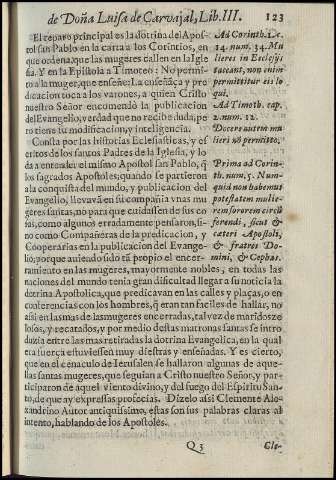 de Doña Luisa de Carvajal, Lib. III. 123
El reparo principal es la dotrina del Apos-
tol san Pablo en la carta a los Corintios, en
que ordena, que las mugeres callen en la Igle
sia. Y en la Epistola a Timoteo: No permi-
to a la muger, que enseñe. La enseñança y pre
dicacion toca a los varones, a quien Cristo
nuestro Señor encomendò la publicacion
del Evangelio, verdad que no recibe duda, pe
ro tiene su modificacion, y inteligencia.
Consta por las historias Eclesiasticas, y es
critos de los santos Padres de la Iglesia, y lo
da a entender el mismo Apostol san Pablo, q̃
los sagrados Apostoles, quando se partieron
a la conquista del mundo, y publicacion del
Evangelio, llevavã en su compañia vnas mu
geres santas, no para que cuidassen de sus co
sas, como algunos erradamente pensaron, si-
no como Compañeras de la predicacion, y
Cooperarias en la publicacion del Evange-
lio, porque auiendo sido tã propio el encer-
ramiento en las mugeres, mayormente nobles, en todas las
naciones del mundo tenia gran dificultad llegar a su noticia la
dotrina Apostolica, que predicavan en las calles y plaças, o en
conferencias con los hombres, q̃ eran tan faciles de hallar, no
assi en las mas de las mugeres encerradas, tal vez de maridos ze
losos, y recatados, y por medio destas matronas santas se intro
duzia entre las mas retiradas la dotrina Evangelica, en la qual
era fuerça estuviessen muy diestras y enseñadas. Y es cierto,
que en el cenaculo de Ierusalen se hallaron algunas de aque-
llas santas mugeres, que seguian a Cristo nuestro Señor, y par-
ticiparon de aquel viento divino, y del fuego del Espiritu San-
to, de que ay expressas profecias. Dizelo assi Clemente Ale-
xandrino Autor antiquissimo, estas son sus palabras claras al
intento, hablando de los Apostoles.
Q3 Cle-
Ad Corinth. I. c.
14. num. 34. Mu
lieres in Ecclesijs
taceant, non enim
permittitur eis lo
qui.
Ad Timoth. cap.
2. num. 12.
Docere autem mu
lieri nõ permitto.
Prima ad Corin-
th. num. 5. Num-
quid non habemus
potestatem mulie-
rem sororem circũ
ferendi, sicut &
cæteri Apostoli,
& fratres Do-
mini, & Cephas.